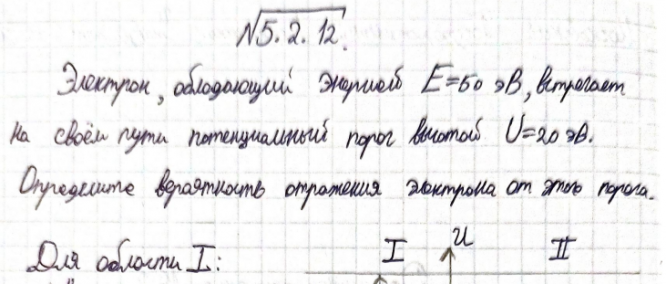 №5.2.12.
Электрон, обладающий энергией E=50 эВ, встречает
на своём пути потенциальный порог высотой U=20 эВ.
Определите вероятность отражения электрона от этого порога.
Для области I:
I U II